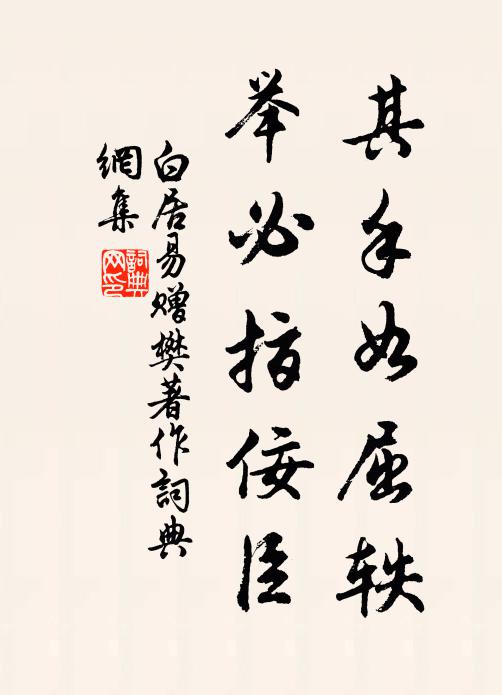 其手如屈轶
举必指佞臣
白居易赠樊著作詞典
網集
詞典
网印